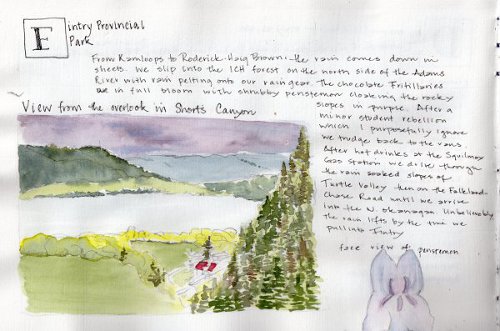 Fintry Provincial
Park
From Kamloops to Roderick-Haig Brown: the rain comes down in
sheets. We slip into the ICH forest on the north side of the Adams
River with rain pelting onto our raingear. The chocolate Fritillaries
are in full bloom with shrubby penstemon cloaking the rocky
slopes in purple. After a
minor student rebellion
which I purposefully ignore
we trudge back to the vans.
After hot drinks at the Squilax
Gas station we drive through
the rain soaked slopes of
Turtle Valley then on the Falkland-
Chase Road until we arrive
into the N. Okanagan. Unbelievably
the rain lifts by the time we
pull into Fintry
View from the overlook in Shorts Canyon
face view of penstemon